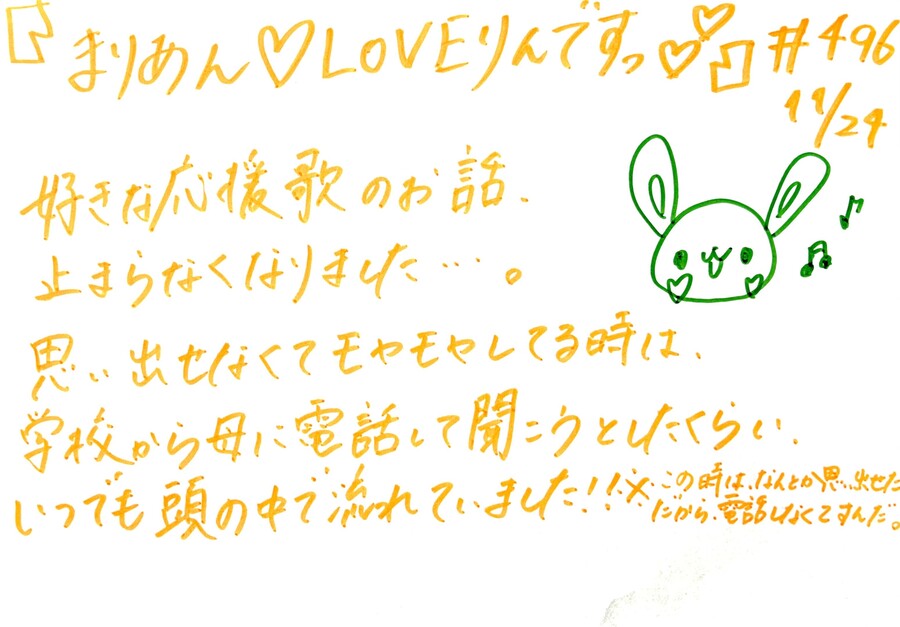 『まりめん♡LOVEりんですっ♡♡』#496
11/24
好きな応援歌のお話、
止まらなくなりました…。
思い出せなくてモヤモヤしてる時は、
学校から母に電話して聞こうとしたくらい、
いつでも頭の中で流れていました!!※この時は、なんとか思い出せた
だから、電話しなくてすんだ。